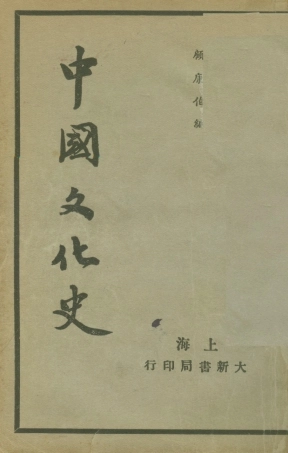 中國文化史
顧康伯編
海上
大新書局印行